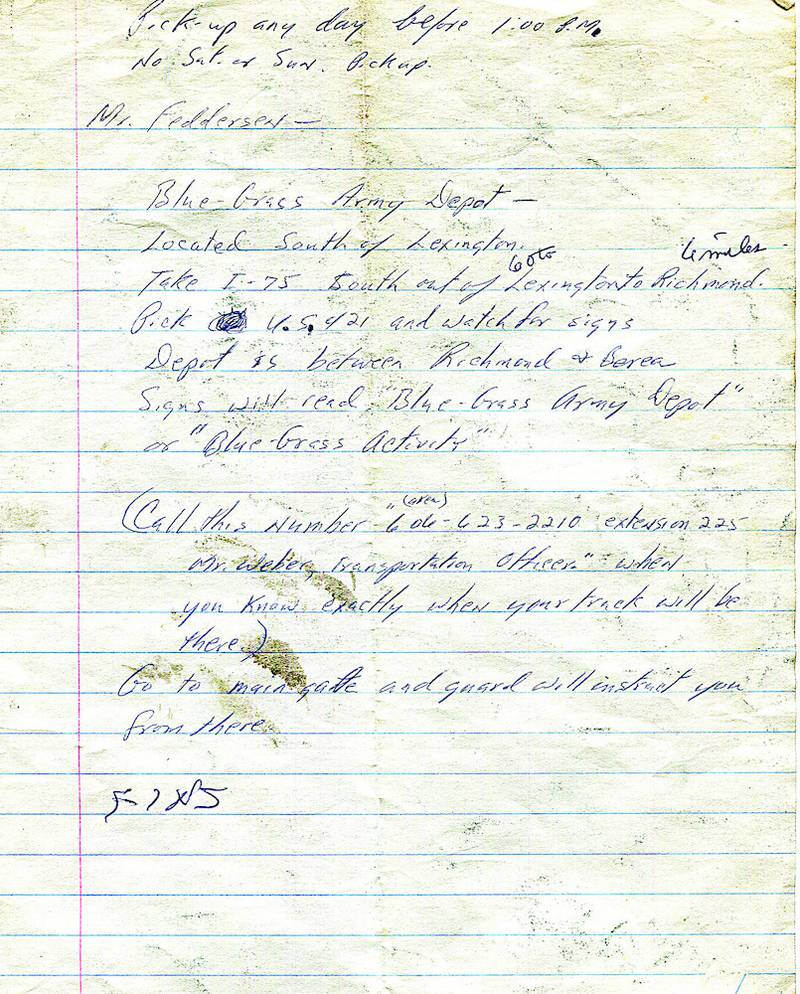 Pick-up any day before 1:00 P.M.
No Sat. or Sun. Pickup.
Mr. Feddersen —
Blue-Grass Army Depot —
Located South of Lexington.
6 miles
Take I-75 South out of Lexington to Richmond.
Pick U.S. 421 and watch for signs
Depot is between Richmond & Berea
Signs will read "Blue-Grass Army Depot"
or "Blue-Grass Activity"
(area)
(Call this Number "606-623-2210 extension 225
Mr. Weber, Transportation Officer." when
you know exactly when your truck will be
there.)
Go to main gate and guard will instruct you
from there.